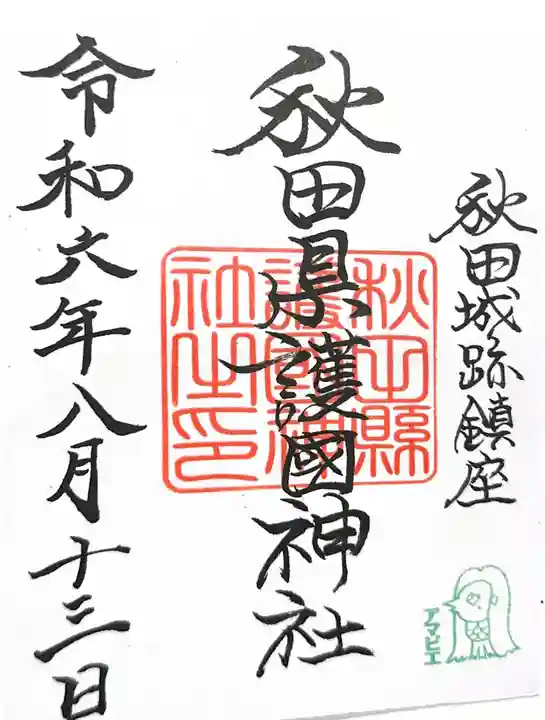 秋田城跡鎮座
秋田県護國神社
秋田縣
護國神
社之印
令和六年八月十三日
アマビエ